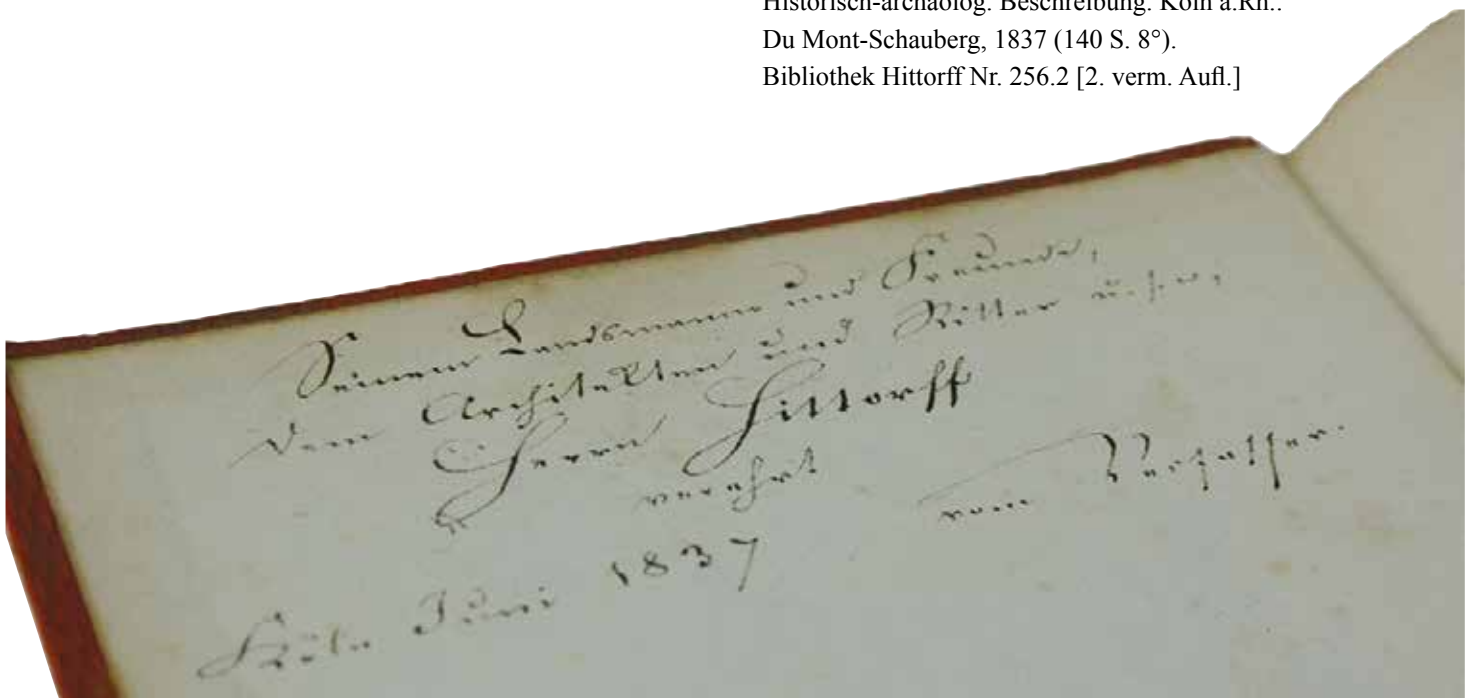 Historisch-archäolog. Beschreibung. Köln a.Rh..
Du Mont-Schauberg, 1837 (140 S. 8°).
Bibliothek Hittorff Nr. 256.2 [2. verm. Aufl.]
Seinem Landsmann und Freunde,
dem Architekten und Ritter u.s.w.,
Herrn Hittorff
verehrt
vom Verfasser.
Köln Juni 1837